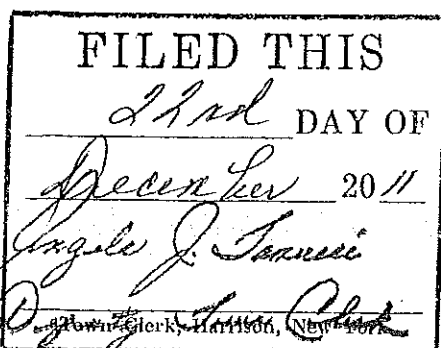 FILED THIS
22nd DAY OF
December 2011
Angelo J.
Deputy Town Clerk
Town Clerk, Harrison, New York